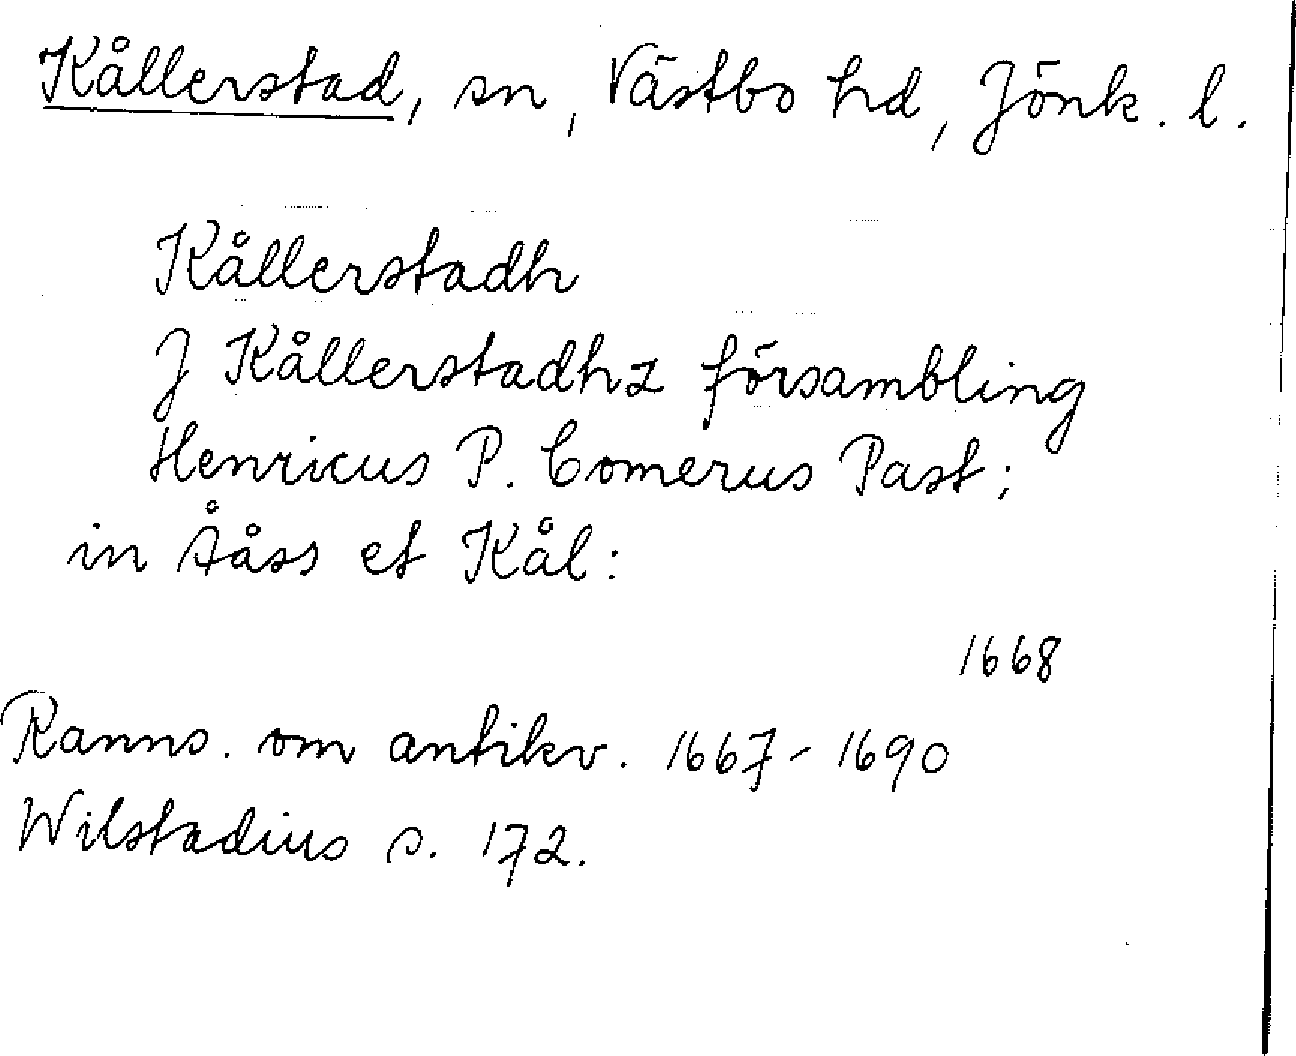 Kållerstad, sn, Västbo hd, Jönk. l.
Kållerstadh
J Kållerstadhz försambling
Henricus P. Comerus Past;
in Ååss et Kål:
1668
Ranns. om antikv. 1667-1690
Wilstadius s. 172.